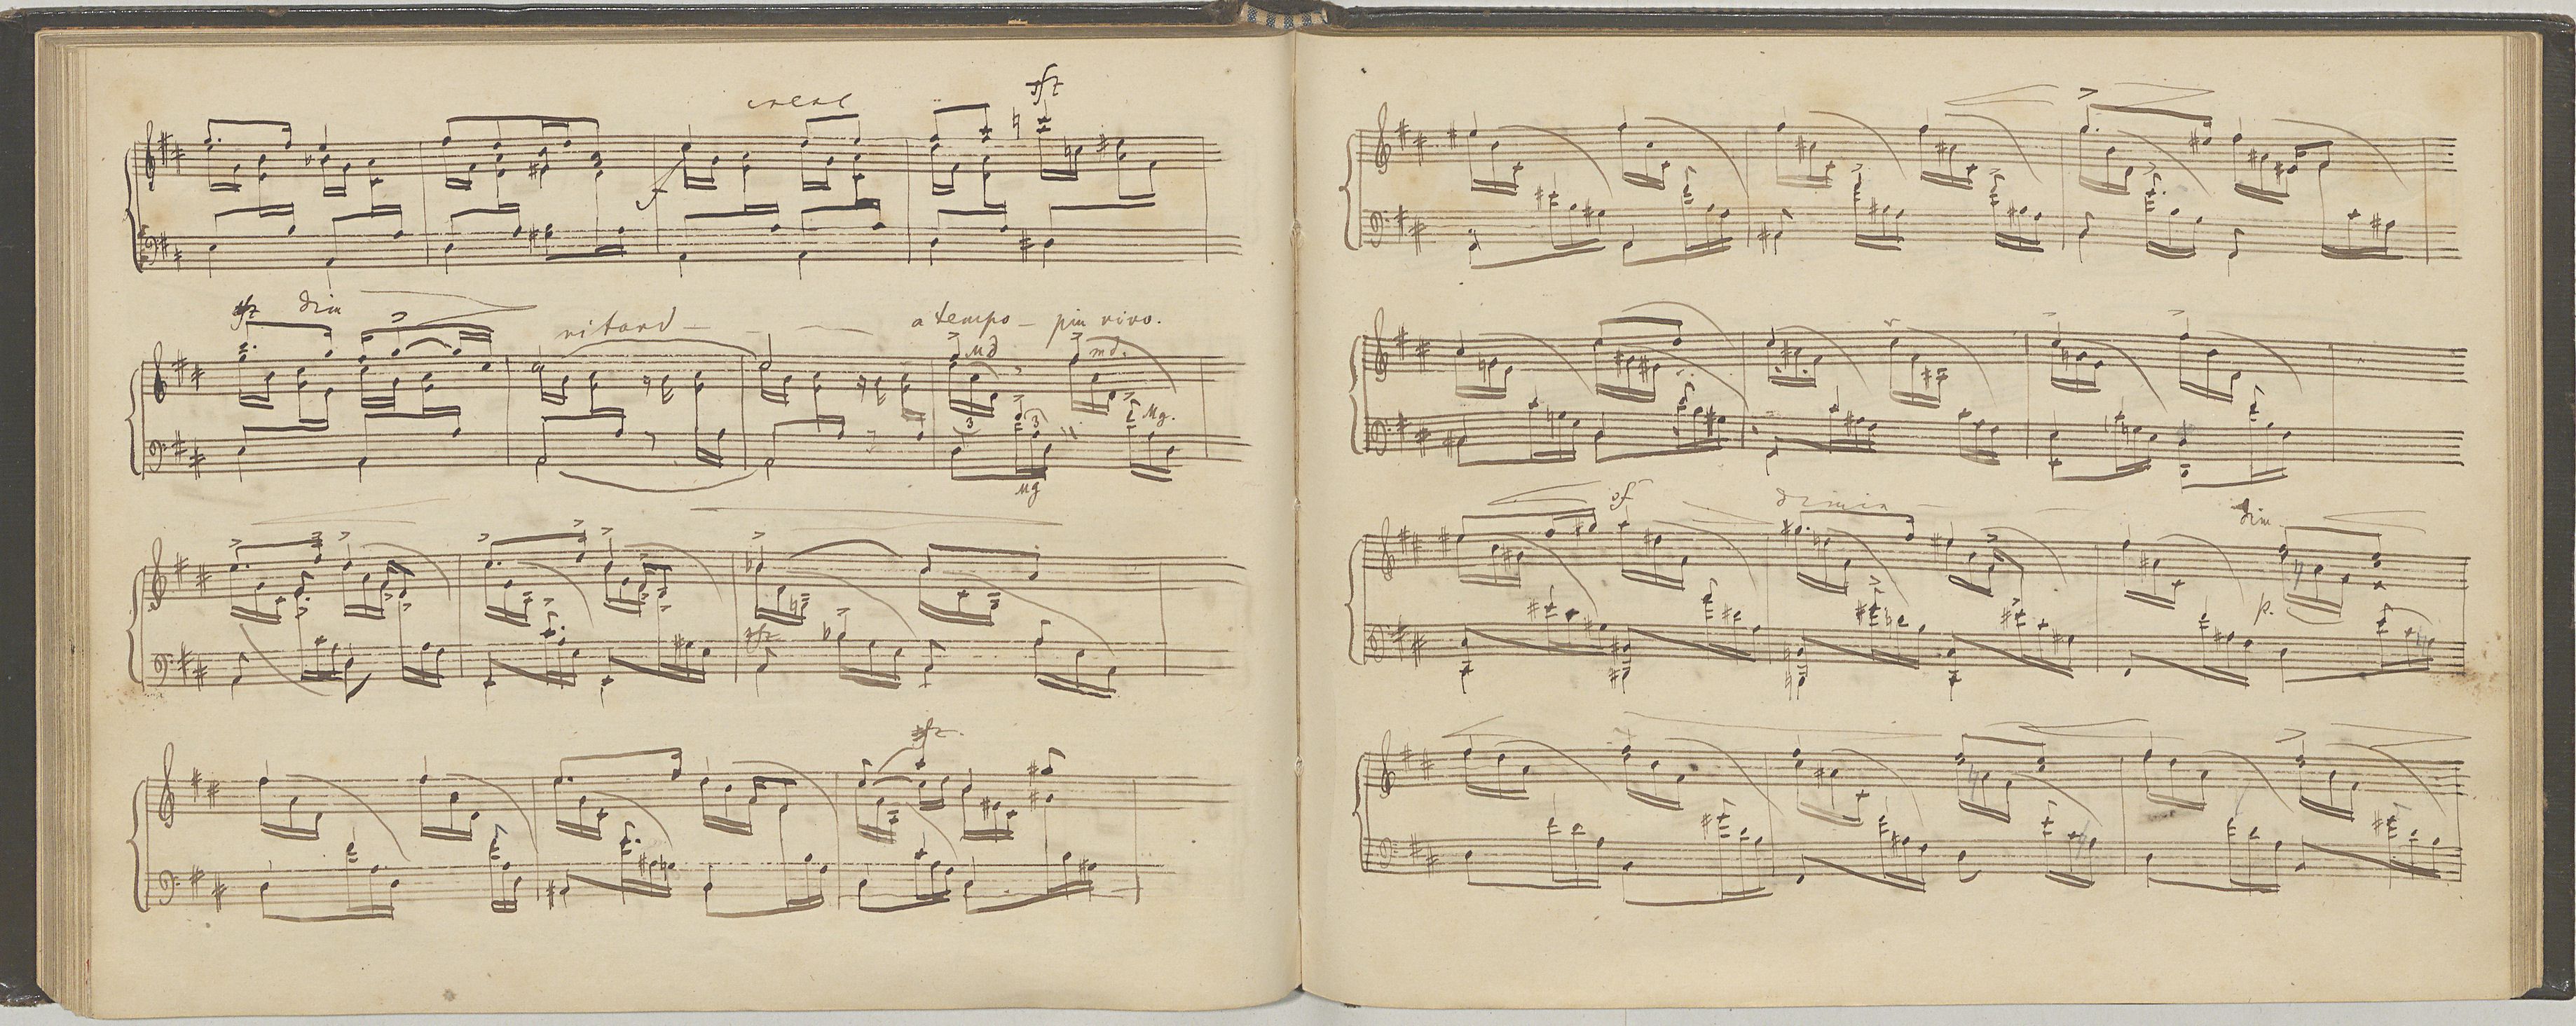 cresc
sfz
f
sfz dim
ritard - - - a tempo - piu vivo.
Md md.
3 3 Mg.
Mg
sfz
sfz.
sf dimin
dim
p.